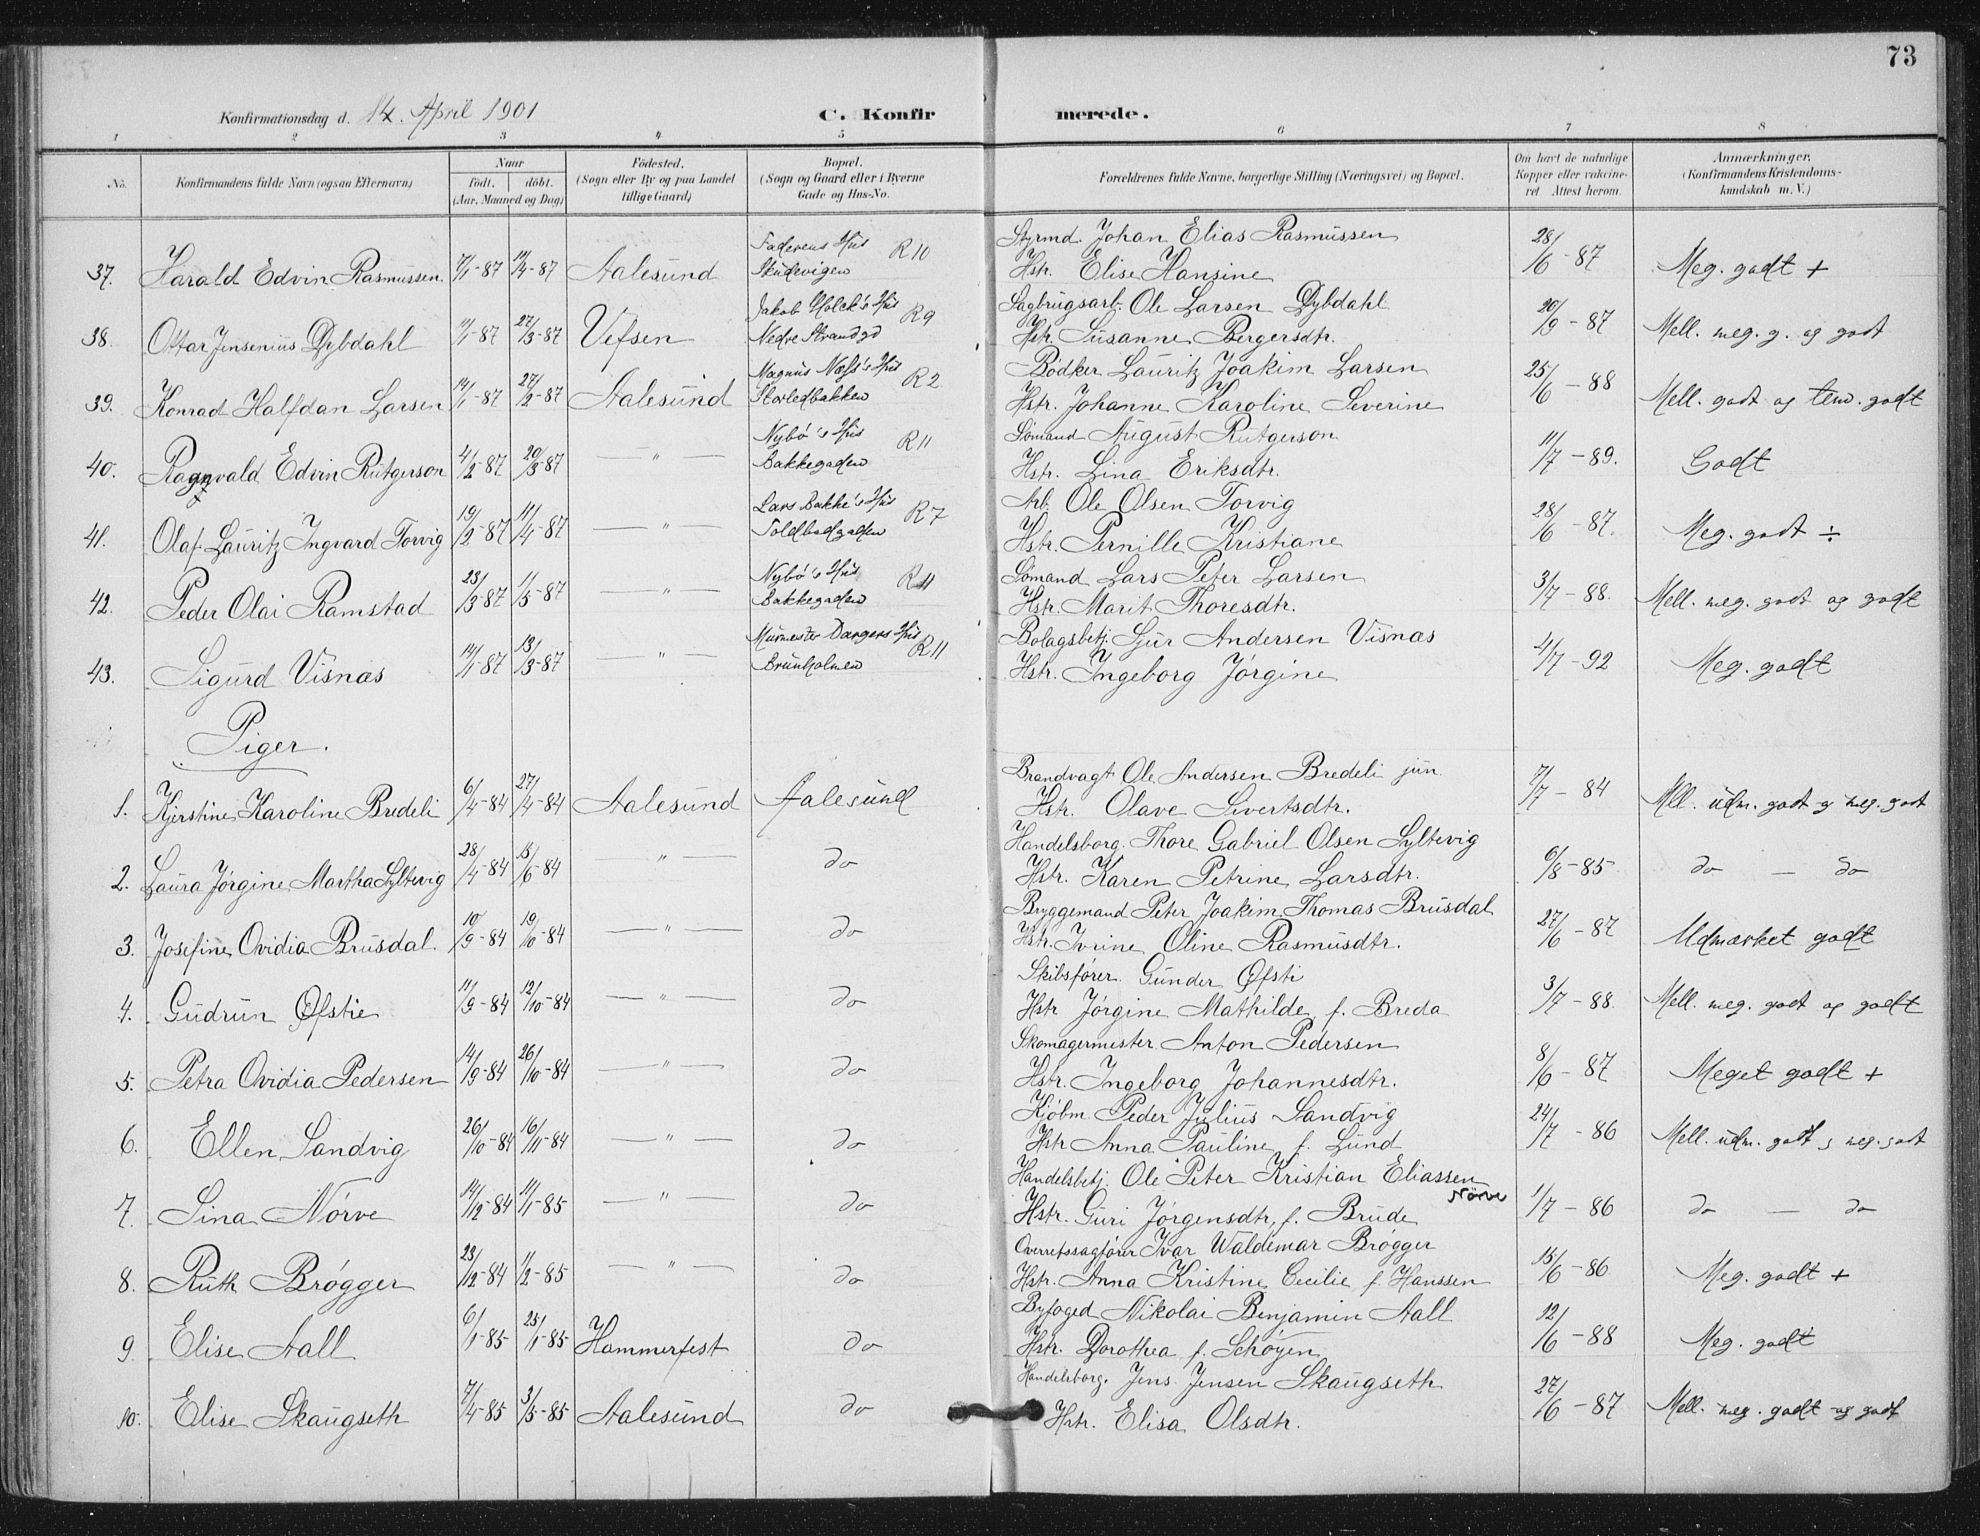 73
Konfirmationsdag d. 14. April 1901
C. Konfirmerede.
1 2 3 " 5 6 7 8
No.
Konfirmandens fulde Navn (ogsaa Efternavn)
Naar
födt. döbt.
(Aar, Maaned og Dag)
Födested.
(Sogn eller By og paa Landet
tillige Gaard)
Bopæl.
(Sogn og Gaard eller i Byerne
Gade og Hus-No.
Forældrenes fulde Navne, borgerlige Stilling (Næringsvei) og Bopæl.
Om havt de naturlige
Kopper eller vakcineret
Attest herom.
Anmærkninger.
(Konfirmandens Kristendomskundskab
m. V.)
Faderens Hus R 10 Styrmd. Johan Elias Rasmussen
37. Harald Edvin Rasmussen -87 -87 Aalesund Skudevigen Hstr. Elise Hansine 28/6-87 Meg. godt +
Jakob Holck's Hus R 9 Sagbrugsarb. Ole Larsen Dybdahl
38. Ottar Jensenius Dybdahl -87 27/3-87 Vefsen Nedre Strandgd Hstr. Susanne Bergersdtr. 20/9-87 Mell. meg. g. og godt
Magnus Næss's Hus R 2 Bödker Lauritz Joakim Larsen
39. Konrad Halfdan Larsen 14/1-87 27/2-87 Aalesund Storledbakken Hstr. Johanne Karoline Severine 25/6-88 Mell. godt og tem. godt
Nybö's Hus R 11 Sömand August Rutgerson
40. Ragnvald Edvin Rutgerson 4/2-87 20/3-87 — " — Bakkegaden Hstr. Lina Eriksdtr. 11/7-89. Godt
Lars Bakke's Hus R 7 Arb. Ole Olsen Torvig
41. Olaf Lauritz Ingvard Torvig 19/2-87 11/4-87 — " — Toldbodgaden Hstr. Pernille Kristiane 28/6-87. Meg. godt ÷
Nybö's Hus R 11 Sömand Lars Peter Larsen
42. Peder Olai Ramstad 23/3-87 /5-87 — " — Bakkegaden Hstr. Marit Thoresdtr. 3/7-88. Mell. meg. godt og godt
Murmester Hus R 11 Bolagsbetj. Sjur Andersen Visnæs
43. Sigurd Visnæs 14/1-87 13/3-87 — " — Brunholmen Hstr. Ingeborg Jörgine 4/7-92 Meg. godt
Piger.
Brandvagt Ole Andersen Bredeli jun
1. Kjerstine Karoline Bredeli 6/4-84 27/4-84 Aalesund Aalesund Hstr. Olave Sivertsdtr. 7/7-84 Mll. udm. godt og meg. godt
Handelsborg. Thore Gabriel Olsen Syltevig
2. Laura Jörgine Martha Syltevig 28/4-84 15/6-84 — " — do Hstr. Karen Petrine Larsdtr. 6/8-85 do — do
Bryggemand Peter Joakim Thomas Brusdal
3. Josefine Ovidia Brusdal 10/9-84 19/10-84 — " — do Hstr. Ivrine Oline Rasmusdtr. 27/6-87 Udmærket godt
Skibsfører Gunder Øfsti
4. Gudrun Øfstie 11/9-84 12/10-84 — " — do Hstr Jörgine Mathilde f. Breda 3/7-88. Mell. meg. godt og godt
Skomagermester Anton Pedersen
5. Petra Ovidia Pedersen 14/9-84 26/10-84 — " — do Hstr. Ingeborg Johannesdtr. 8/6-87 Meget godt +
Kjöbm. Peder Julius Sandvig
6. Ellen Sandvig 26/10-84 16/11-84 — " — do Hstr Anna Pauline f. Lund 24/7-86 Mell. udm. godt og meg. godt
Handelsbetj. Ole Peter Kristian Eliassen
Nörve
7. Lina Nörve 14/12-84 11/1-85 — " — do Hstr. Guri Jörgensdtr, f. Brude 1/7-86 do — do
Overretssagfører Ivar Waldemar Brøgger
8. Ruth Brøgger 23/12-84 /2-85 — " — do Hstr. Anna Kristine Cecilie f. Hanssen 15/6-86 Meg. godt +
Byfoged Nikolai Benjamin Aall
9. Elise Aall 6/1-85 25/1-85 Hammerfest do Hstr. Dorothea f. Schöyen 12/6-88 Meg. godt
Handelsborg. Jens Jensen Skaugseth
10. Elise Skaugseth 7/4-85 3/5-85 Aalesund do Hstr. Elisa Olsdtr. 27/6-87 Mell. meg. godt og godt